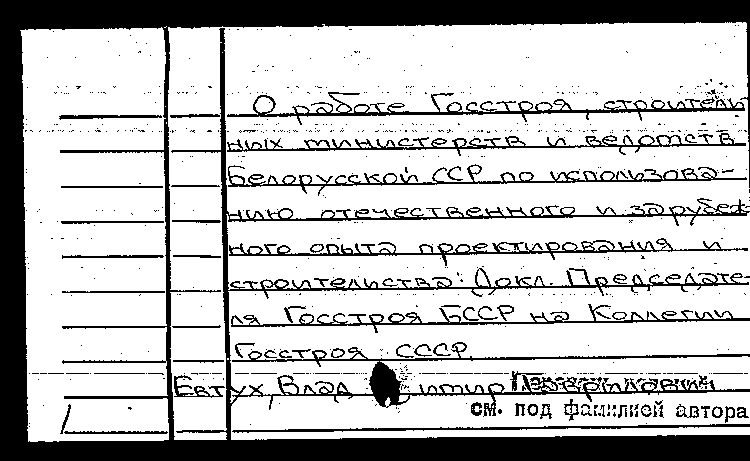 О работе Госстроя, строитель
ных министерств и ведомств
Белорусской ССР по использова-
нию отечественного и зарубеж-
ного опыта проектирования и
строительства: Докл. Председате-
ля Госстроя БССР на Коллегии
Госстроя СССР.
Евтух, Влад имир
см. под фамилией автора